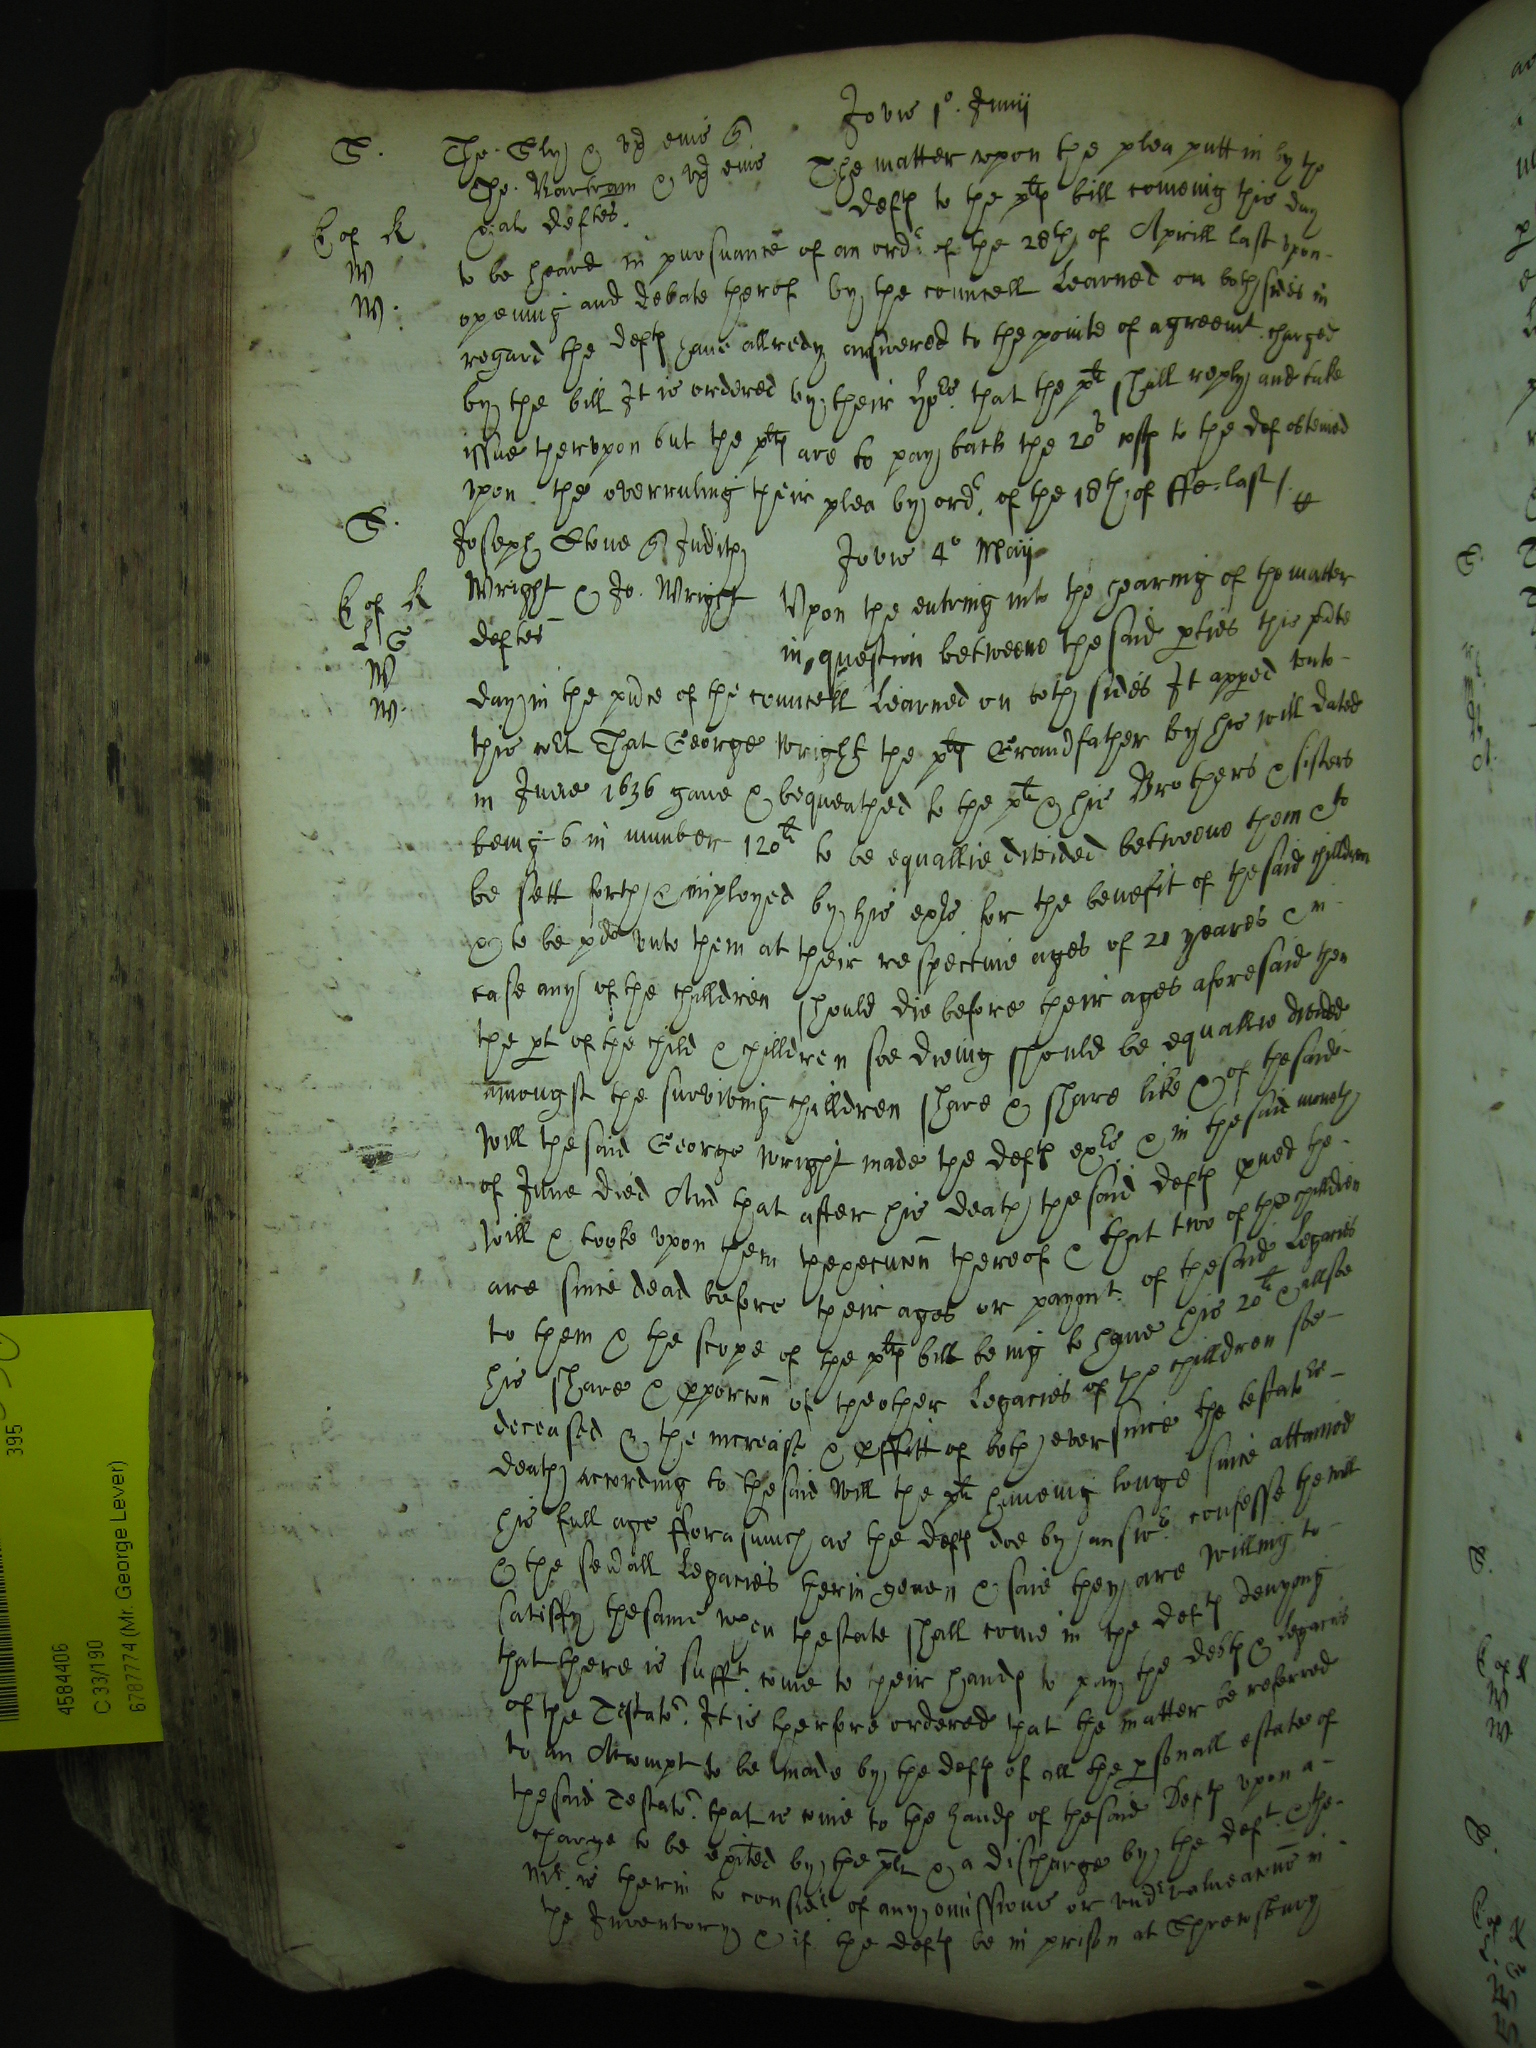 Jovis 1o. Junij
S. Tho. Slyz & ux eius q
Tho. Bartram & ux eius The matter upon the plea putt in by the
& al deftes. deftes to the pltes bill comeing this day
E of K
W
W.
to be heard in pursuance of an ordr of the 28th of Aprill last upon
opening and debate therof by the councell Learned on both sides in
regard the deftes have allredy answered to the pointe of agreemt charged
by the bill It is ordered by their Lpps. that the plt shall reply and take
issue therupon but the pltes are to pay back the 20s costes to the def obteined
upon the overruling their plea by ordr. of the 18th of ffe: last /.
S. Joseph Stone q Judith Jovis 4o Maij
E of K Wright & Jo. Wright Upon the entring into the hearing of the matter
L G deftes in question betweene the said pties this pnte
W
W.
day in the pnce of the councell Learned on both sides It appeed unto
this Cort That George Wright the pltes Grandfather by his will dated
in June 1636 gave & bequeathed to the plt & his Brothers & sisters
being 6 in number 120li to be equallie divided betweene them & to
be sett forth & imployed by his exrs for the benefit of the said children
& to be pd unto them at their respective ages of 21 yeares & in
case any of the children should die before their ages aforesaid then
the pt of the child & children soe dieing should be equallie divided
amongst the surviving children share & share like & of the said
Will the said George Wright made the deftes exrs & in the said moneth
of June died And that after his death the said deftes pved the
Will & tooke upon them thexecucon thereof & that two of the children
are since dead before their ages or paymt. of the said Legacies
to them & the scope of the pltes bill being to have his 20li & allsoe
his share & pporcon of theother Legacies of the children soe
deceased & the increase & pffitt of both ever since the testators
death according to the said Will the plt haveing longe since attained
his full age fforasmuch as the deftes doe by answr. confesse the will
& the sevall Legacies herin geven & said they are willing to
satisfy the same when thestate shall come in the deftes denyong
that there is sufft. come to their handes to pay the debtes & legacies
of the Testator. It is therfore ordered that the matter be referred
to an Accompt to be made by the deftes of all the psonall estate of
the said Testator. that is come to the handes of the said Deftes upon a
charge to be exited by the plt & a discharge by the deft. & the
Mr. is therin to considr. of any omissions or undrvalueacons in
the Inventory & if the deftes be in prison at Shrewsbury
395
4584406
C 33/190
6787774 (Mr. George Lever)